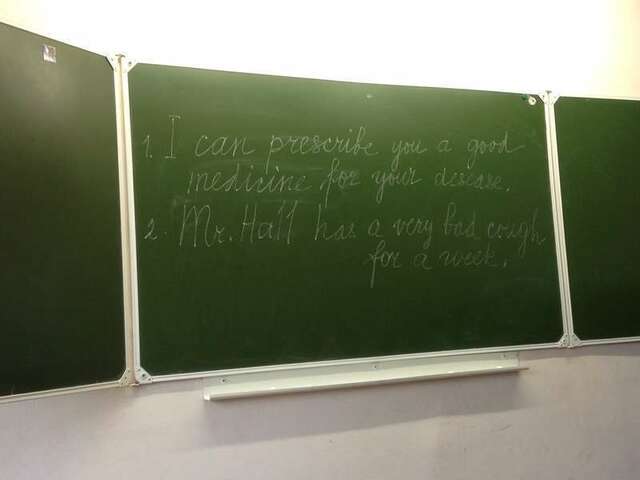 1. I can prescribe you a good
medicine for your desease.
2. Mr. Hall has a very bad cough
for a week.